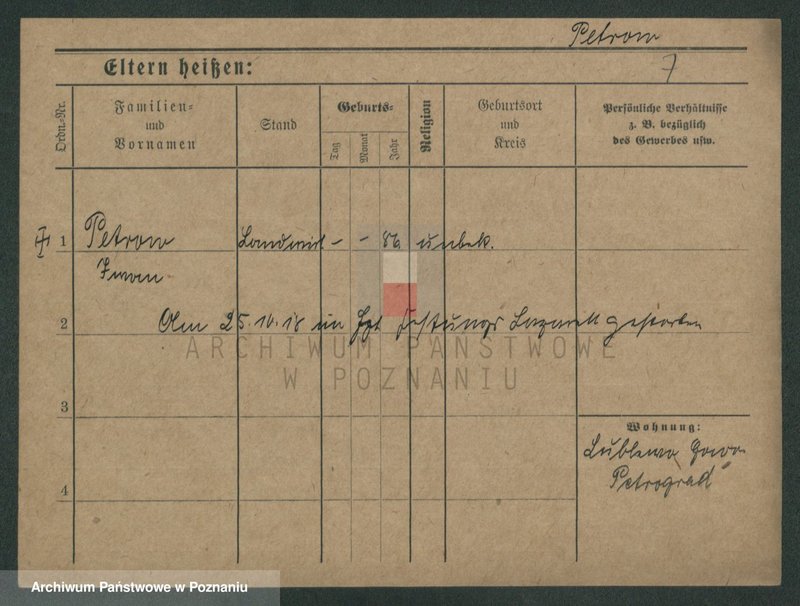 Petrow
7
Eltern heißen:
Ordn.-Nr.
Familien-
und
Vornamen
Stand
Geburts-
Tag
Monat
Jahr
Religion
Geburtsort
und
Kreis
Persönliche Verhältnisse
z. B. bezüglich
des Gewerbes usw.
1 Petrow Landwirt - - 86 unbek.
Iwan
2 Am 25.10.18 im Fest­ungs Lazarett gestorben
ARCHIWUM PAŃSTWOWE
W POZNANIU
3
Wohnung:
Petrograd
4
Archiwum Państwowe w Poznaniu